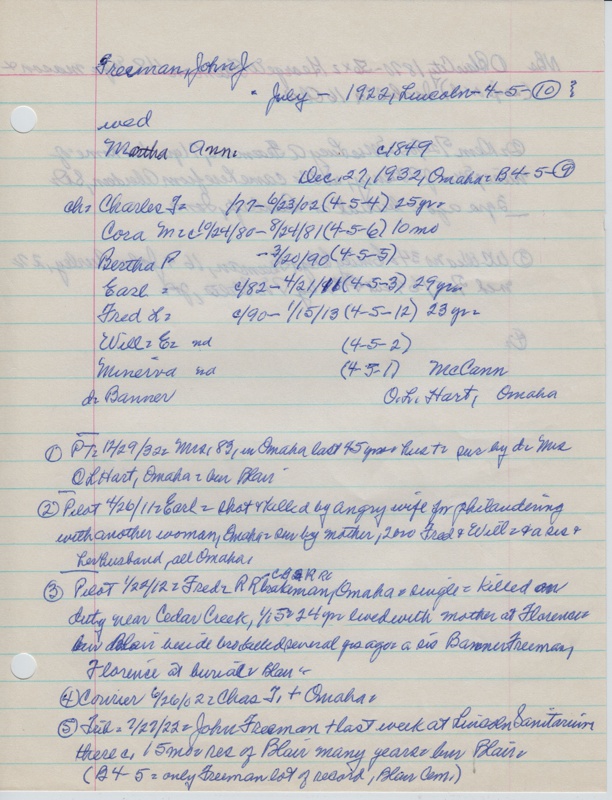 Freeman, John J
" July - 1922, Lincoln - 4-5-⑩ }
wed
Martha Ann = c/1849
Dec. 27, 1932, Omaha = B4-5-⑨
ch = Charles T = /77 - 6/23/02 (4-5-4) 25 yr =
Cora M = c 10/24/80 - 8/24/81 (4-5-6) 10 mo
Bertha P - 3/20/90 (4-5-5)
Earl = c/82 - 4/21/11 (4-5-3) 29 yr =
Fred L = c/90 - 1/15/13 (4-5-12) 23 yr =
Will = E = nd (4-5-2)
Minerva nd (4-5-1) McCann
d = Banner O.L. Hart, Omaha
① PT = 12/29/32 = Mrs, 83, in Omaha last 45 yrs = = sur by d = Mrs
O L Hart, Omaha = bur Blair
② Pilot 4/26/11 = Earl = shot & killed by angry wife for philandering
with another woman, Omaha = sur by mother, 2 bro Fred & Will = & a sis &
her husband, all Omaha,
③ Pilot 1/22/12 = Fred = R R brakeman, Omaha = single = killed on
duty near Cedar Creek, 1/15 = 24 yr lived with mother at Florence =
bur Blair beside bro killed several yrs ago = a sis Banner Freeman,
Florence at burial = Blair =
④ Courier 6/26/02 = Chas T, + Omaha =
⑤ Trib = 7/27/22 = John Freeman + last week at Lincoln Sanitarium
there c, 15 mo = res of Blair many years = bur Blair =
(B4-5 = only Freeman lot of record, Blair Cem.)